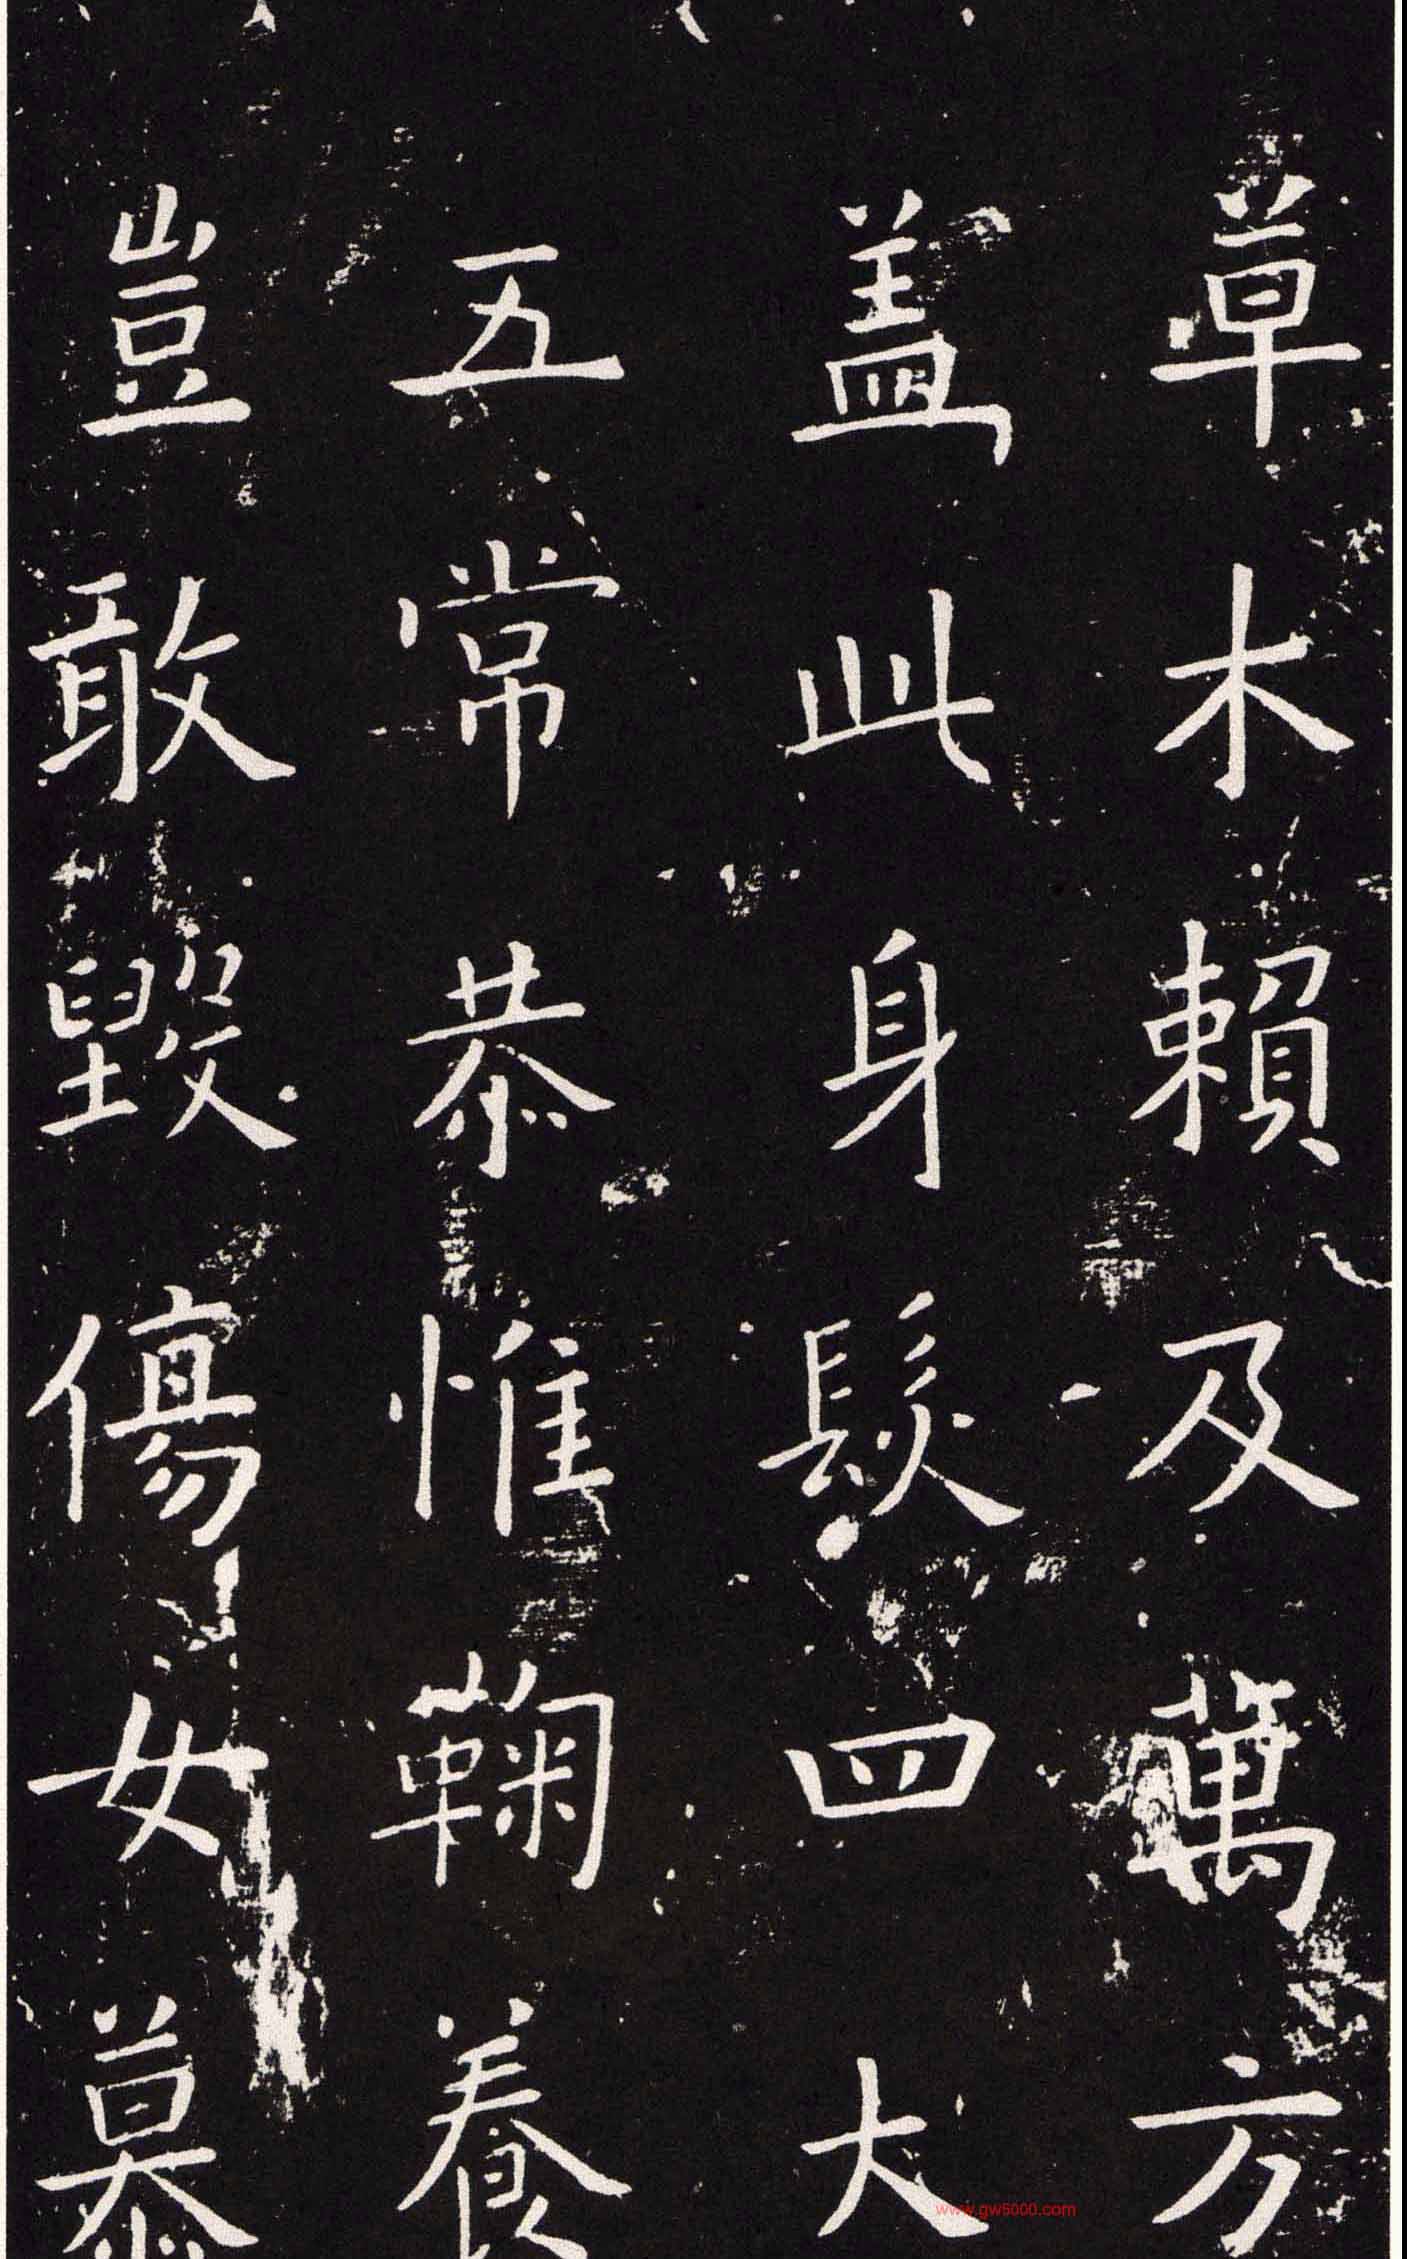 草木賴及萬方
盖此身髮四大
五常恭惟鞠養
豈敢毀傷女慕
www.gw5000.com